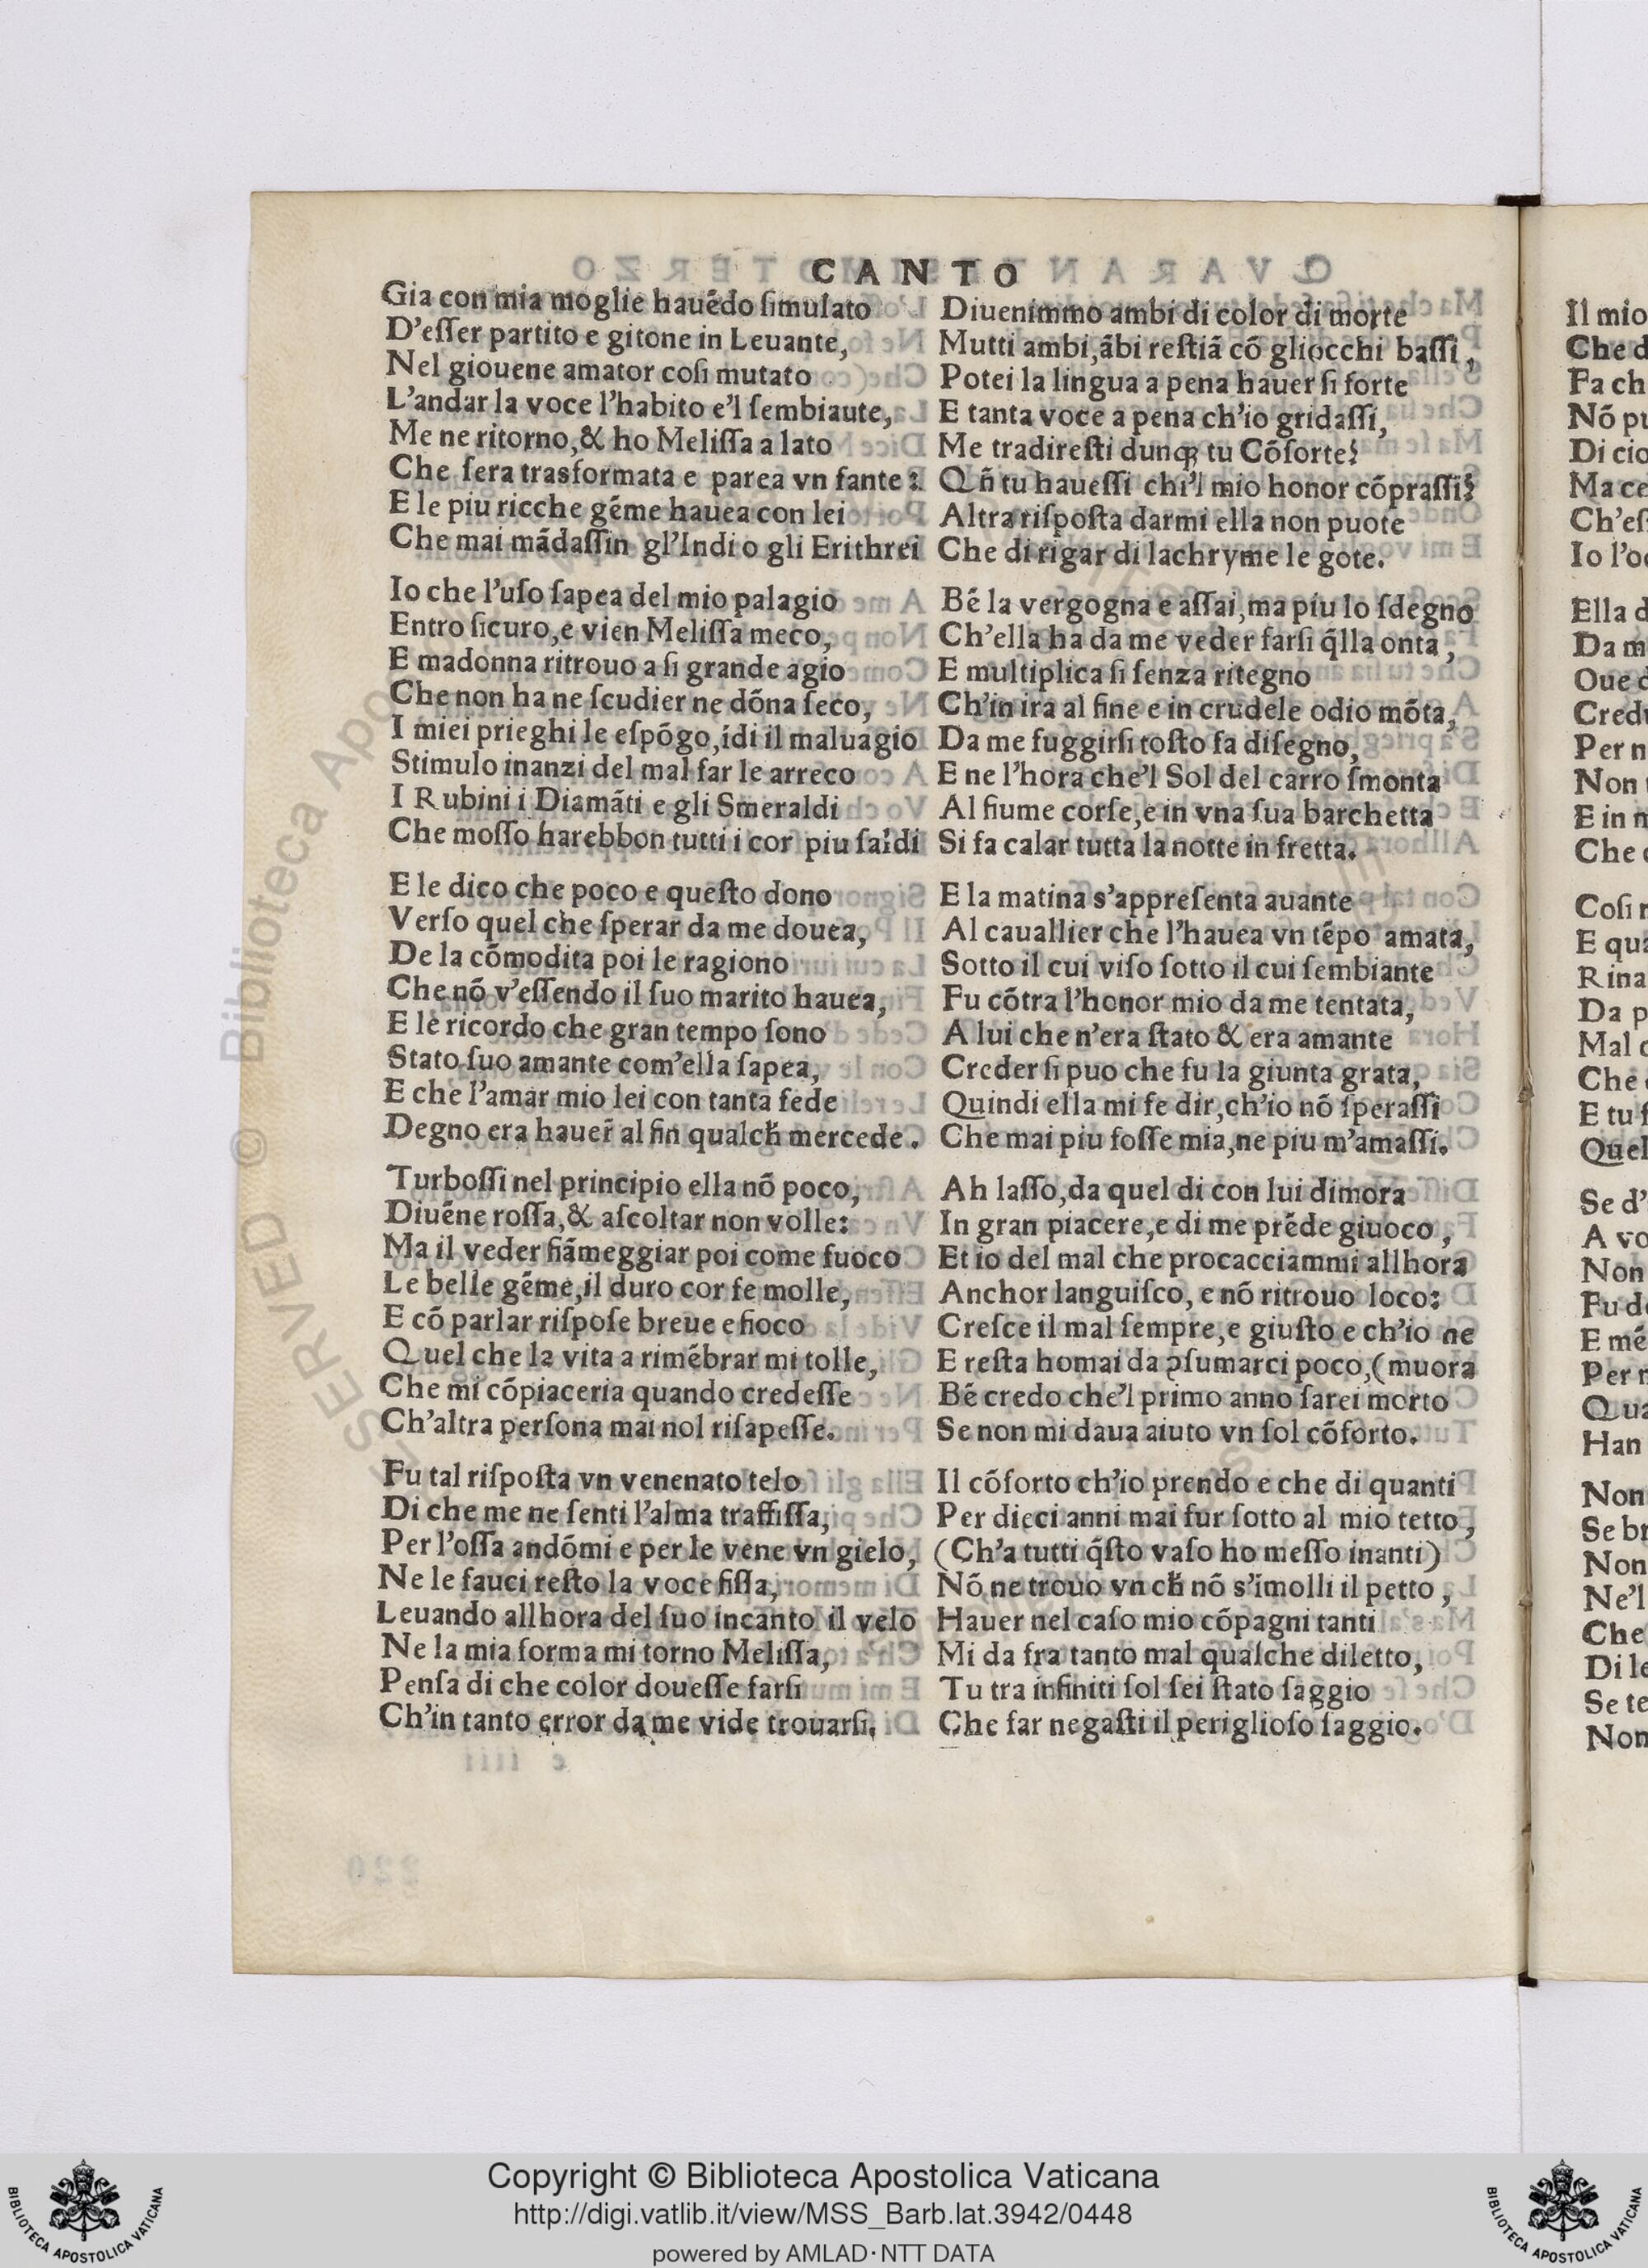 CANTO
Gia con mia moglie hauẽdo ſimulato
D'eſſer partito e gitone in Leuante,
Nel giouene amator coſi mutato
L'andar la voce l'habito e'l ſembiaute,
Me ne ritorno, & ho Meliſſa a lato
Che ſera trasformata e parea vn fante:
E le piu ricche gẽme hauea con lei
Che mai mãdaſſin gl'Indi o gli Erithrei
Io che l'uſo ſapea del mio palagio
Entro ſicuro, e vien Meliſſa meco,
E madonna ritrouo a ſi grande agio
Che non ha ne ſcudier ne dõna ſeco,
I miei prieghi le eſpõgo, ĩdi il maluagio
Stimulo inanzi del mal far le arreco
I Rubini i Diamãti e gli Smeraldi
Che moſſo harebbon tutti i cor piu ſaldi
E le dico che poco e queſto dono
Verſo quel che ſperar da me douea,
De la cõmodita poi le ragiono
Che nõ v'eſſendo il ſuo marito hauea,
E le ricordo che gran tempo ſono
Stato ſuo amante com'ella ſapea,
E che l'amar mio lei con tanta fede
Degno era hauer̃ al fin qualcħ mercede.
Turboſſi nel principio ella nõ poco,
Diuẽne roſſa, & aſcoltar non volle:
Ma il veder fiãmeggiar poi come fuoco
Le belle gẽme, il duro cor fe molle,
E cõ parlar riſpoſe breue e fioco
Quel che la vita a rimẽbrar mi tolle,
Che mi cõpiaceria quando credeſſe
Ch'altra perſona mai nol riſapeſſe.
Fu tal riſpoſta vn venenato telo
Di che me ne ſenti l'alma traffiſſa,
Per l'oſſa andõmi e per le vene vn gielo,
Ne le fauci reſto la voce fiſſa,
Leuando allhora del ſuo incanto il velo
Ne la mia forma mi torno Meliſſa,
Penſa di che color doueſſe farſi
Ch'in tanto error da me vide trouarſi.
Diuenimmo ambi di color di morte
Mutti ambi, ãbi reſtiã cõ gliocchi baſſi,
Potei la lingua a pena hauer ſi forte
E tanta voce a pena ch'io gridaſſi,
Me tradireſti dunqꝫ tu Cõſorte?
Qñ tu haueſſi chi'l mio honor cõpraſſi?
Altra riſpoſta darmi ella non puote
Che di rigar di lachryme le gote.
Bẽ la vergogna e aſſai, ma piu lo ſdegno
Ch'ella ha da me veder farſi q̃lla onta,
E multiplica ſi ſenza ritegno
Ch'in ira al fine e in crudele odio mõta,
Da me fuggirſi toſto fa diſegno,
E ne l'hora che'l Sol del carro ſmonta
Al fiume corſe, e in vna ſua barchetta
Si fa calar tutta la notte in fretta.
E la matina s'appreſenta auante
Al cauallier che l'hauea vn tẽpo amata,
Sotto il cui viſo ſotto il cui ſembiante
Fu cõtra l'honor mio da me tentata,
A lui che n'era ſtato & era amante
Creder ſi puo che fu la giunta grata,
Quindi ella mi fe dir, ch'io nõ ſperaſſi
Che mai piu foſſe mia, ne piu m'amaſſi.
Ah laſſo, da quel di con lui dimora
In gran piacere, e di me prẽde giuoco,
Et io del mal che procacciammi allhora
Anchor languiſco, e nõ ritrouo loco:
Creſce il mal ſempre, e giuſto e ch'io ne
E reſta homai da ꝯſumarci poco, (muora
Bẽ credo che'l primo anno ſarei morto
Se non mi daua aiuto vn ſol cõforto.
Il cõforto ch'io prendo e che di quanti
Per dieci anni mai fur ſotto al mio tetto,
(Ch'a tutti q̃ſto vaſo ho meſſo inanti)
Nõ ne trouo vn cħ nõ s'ĩmolli il petto,
Hauer nel caſo mio cõpagni tanti
Mi da fra tanto mal qualche diletto,
Tu tra infiniti ſol ſei ſtato ſaggio
Che far negaſti il periglioſo ſaggio.
Il mio
Che d
Fa ch
Nõ pu
Di cio
Ma ce
Ch'eſ
Io l'o
Ella d
Da m
Oue
Cred
Per n
Non
E in
Che
Coſi
E qua
Rina
Da p
Mal
Che
E tu
Quel
Se d'
A vo
Non
Fu d
E mẽ
Per
Qua
Han
Non
Se b
Non
Ne'l
Che
Di le
Se te
Non
© Biblioteca Apo
SERVED
Copyright © Biblioteca Apostolica Vaticana
http://digi.vatlib.it/view/MSS_Barb.lat.3942/0448
powered by AMLAD·NTT DATA
BIBLIOTECA APOSTOLICA VATICANA
BIBLIOTECA APOSTOLICA VATICANA